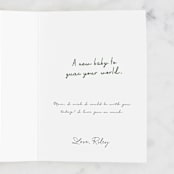 A new baby to
grow your world.
Mom, I wish I could be with you
today! I love you so much.
Love, Riley